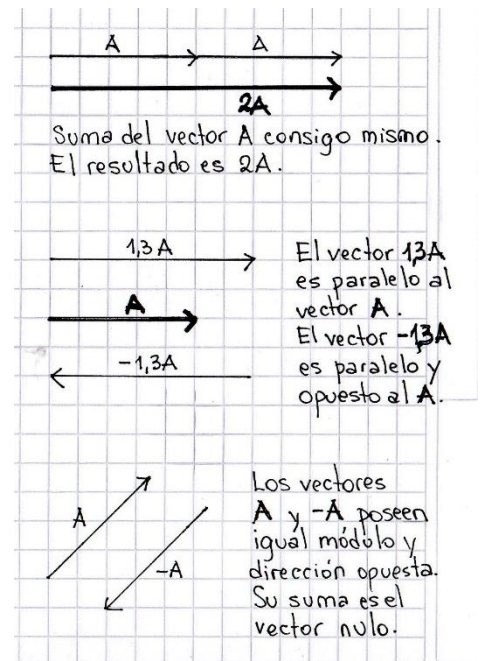 A A
2A
Suma del vector A consigo mismo.
El resultado es 2A.
1,3 A
A
-1,3A
El vector 1,3A
es paralelo al
vector A.
El vector -1,3A
es paralelo y
opuesto al A.
A
-A
Los vectores
A y -A poseen
igual módulo y
dirección opuesta.
Su suma es el
vector nulo.